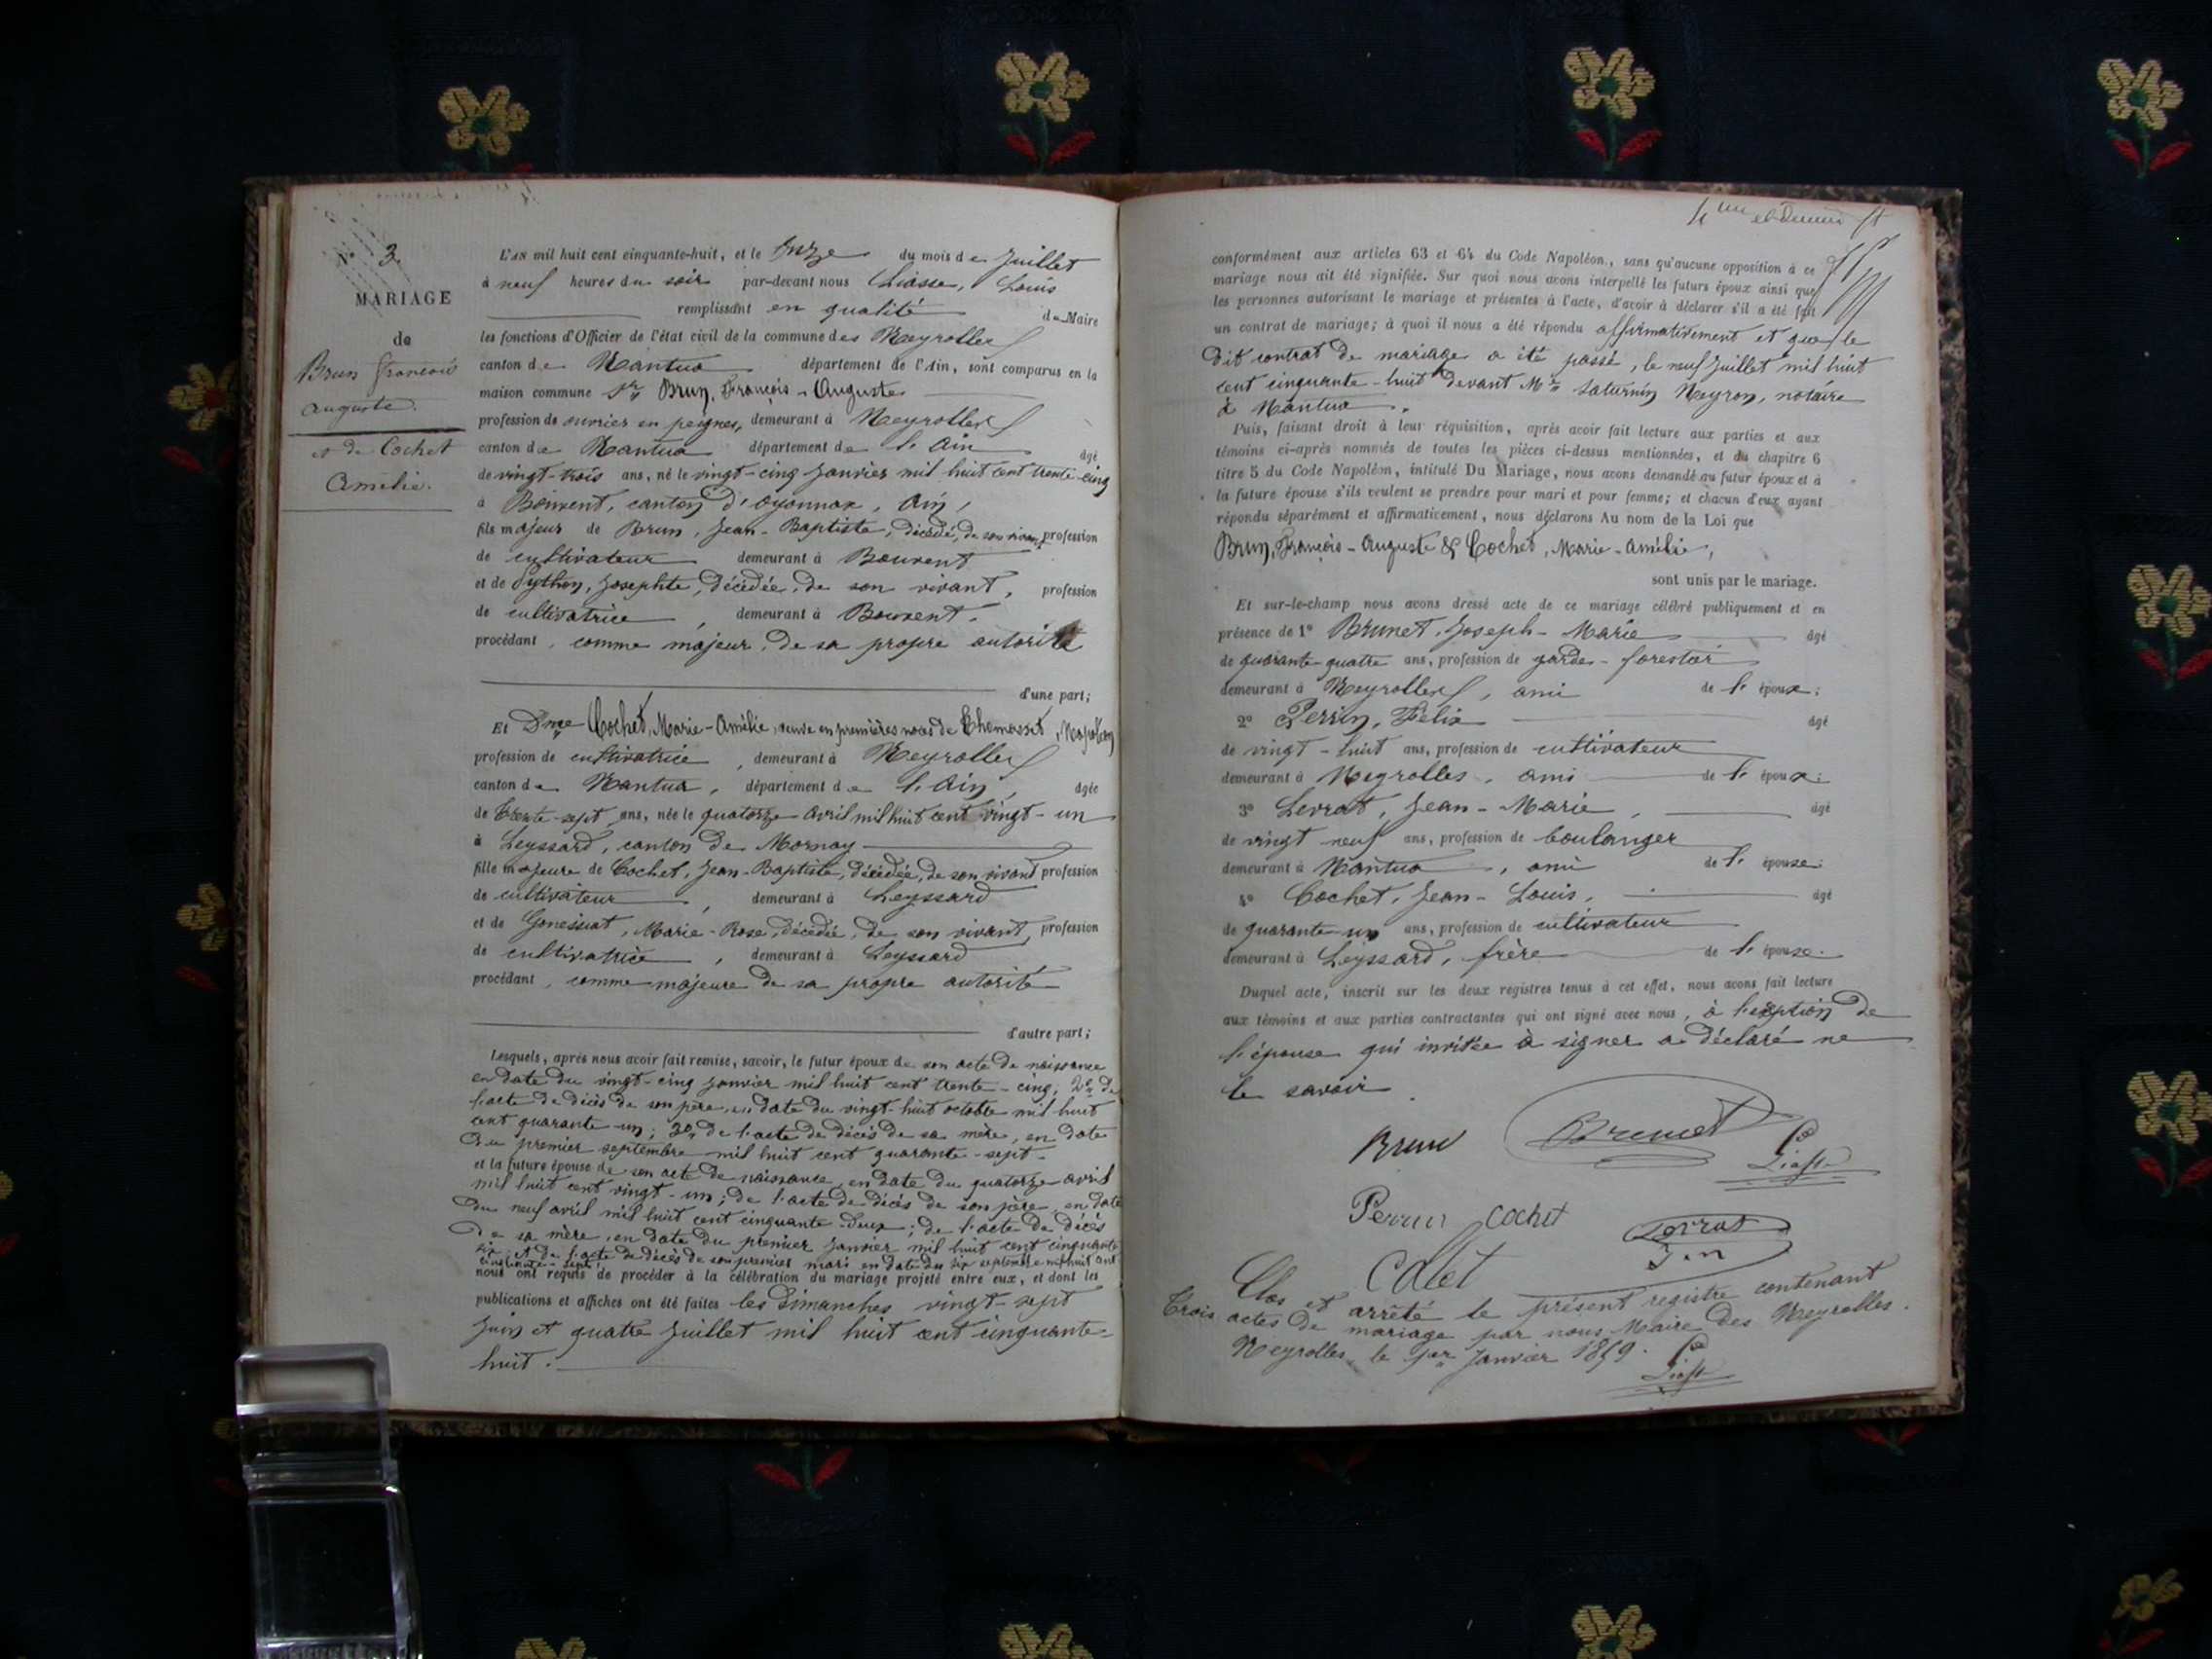 N° 3
MARIAGE
de
Brun françois
auguste.
et de Cochet
Amélie.
L'AN mil huit cent cinquante-huit, et le onze du mois de Juillet
à neuf heures du soir par-devant nous Liasse, Louis
remplissant en qualité de Maire
les fonctions d'Officier de l'état civil de la commune des Neyrolles
canton de Nantua département de l'Ain, sont comparus en la
maison commune Sr Brun, François-Auguste
profession de ouvrier en peignes, demeurant à Neyrolles
canton de Nantua département de l'Ain âgé
de vingt-trois ans, né le vingt-cinq Janvier mil huit cent trente-cinq
à Bouvent, canton d'Oyonnax, Ain,
fils majeur de Brun, Jean-Baptiste, décédé, de son vivant profession
de cultivateur demeurant à Bouvent
et de Python, Josephte, décédée, de son vivant, profession
de cultivatrice, demeurant à Bouvent.
procédant, comme majeur, de sa propre autorité
d'une part;
Et Dme Cochet, Marie-Amélie, veuve en premières noces de Thomasset, Napoléon
profession de cultivatrice, demeurant à Neyrolles
canton de Nantua, département de l'Ain, âgée
de trente-sept ans, née le quatorze avril mil huit cent vingt-un
à Leyssard, canton de Mornay
fille majeure de Cochet, Jean-Baptiste, décédée, de son vivant profession
de cultivateur, demeurant à Leyssard
et de Gonessiat, Marie-Rose, décédée, de son vivant, profession
de cultivatrice, demeurant à Leyssard
procédant, comme majeure de sa propre autorité
d'autre part;
Lesquels, après nous avoir fait remise, savoir, le futur époux de son acte de naissance
en date du vingt-cinq janvier mil huit cent trente-cinq; 2° de
l'acte de décès de son père, en date du vingt-huit octobre mil huit
cent quarante-un; 3° de l'acte de décès de sa mère, en date
du premier septembre mil huit cent quarante-sept.
et la future épouse de son acte de naissance, en date du quatorze avril
mil huit cent vingt-un; de l'acte de décès de son père, en date
du neuf avril mil huit cent cinquante-deux; de l'acte de décès
de sa mère, en date du premier janvier mil huit cent cinquante
six; et de l'acte de décès de son premier mari en date du six septembre mil huit cent
cinquante-sept,
nous ont requis de procéder à la célébration du mariage projeté entre eux, et dont les
publications et affiches ont été faites les Dimanches vingt-sept
Juin et quatre Juillet mil huit cent cinquante-
huit.
conformément aux articles 63 et 64 du Code Napoléon, sans qu'aucune opposition à ce
mariage nous ait été signifiée. Sur quoi nous avons interpellé les futurs époux ainsi que
les personnes autorisant le mariage et présentes à l'acte, d'avoir à déclarer s'il a été fait
un contrat de mariage; à quoi il nous a été répondu affirmativement et que le
dit contrat de mariage a été passé, le neuf Juillet mil huit
cent cinquante-huit devant Me Saturnin Neyron, notaire
à Nantua.
Puis, faisant droit à leur réquisition, après avoir fait lecture aux parties et aux
témoins ci-après nommés de toutes les pièces ci-dessus mentionnées, et du chapitre 6
titre 5 du Code Napoléon, intitulé Du Mariage, nous avons demandé au futur époux et à
la future épouse s'ils veulent se prendre pour mari et pour femme; et chacun d'eux ayant
répondu séparément et affirmativement, nous déclarons Au nom de la Loi que
Brun, François-Auguste & Cochet, Marie-Amélie,
sont unis par le mariage.
Et sur-le-champ nous avons dressé acte de ce mariage célébré publiquement et en
présence de 1° Brunet, Joseph-Marie âgé
de quarante-quatre ans, profession de garde-forestier
demeurant à Neyrolles, ami de l'époux;
2° Perrin, Félix âgé
de vingt-huit ans, profession de cultivateur
demeurant à Neyrolles, ami de l'époux;
3° Levrat, Jean-Marie, âgé
de vingt neuf ans, profession de boulanger
demeurant à Nantua, ami de l'épouse;
4° Cochet, Jean-Louis, âgé
de quarante-un ans, profession de cultivateur
demeurant à Leyssard, frère de l'épouse.
Duquel acte, inscrit sur les deux registres tenus à cet effet, nous avons fait lecture
aux témoins et aux parties contractantes qui ont signé avec nous, à l'exeption de
l'épouse qui invitée à signer a déclaré ne
le savoir.
Brun Brunet
Liasse
Perrin Cochet Levrat
J.m
Clos et arrêté le présent registre contenant
trois actes de mariage par nous, Maire des Neyrolles.
Neyrolles, le 1er Janvier 1859.
Liasse